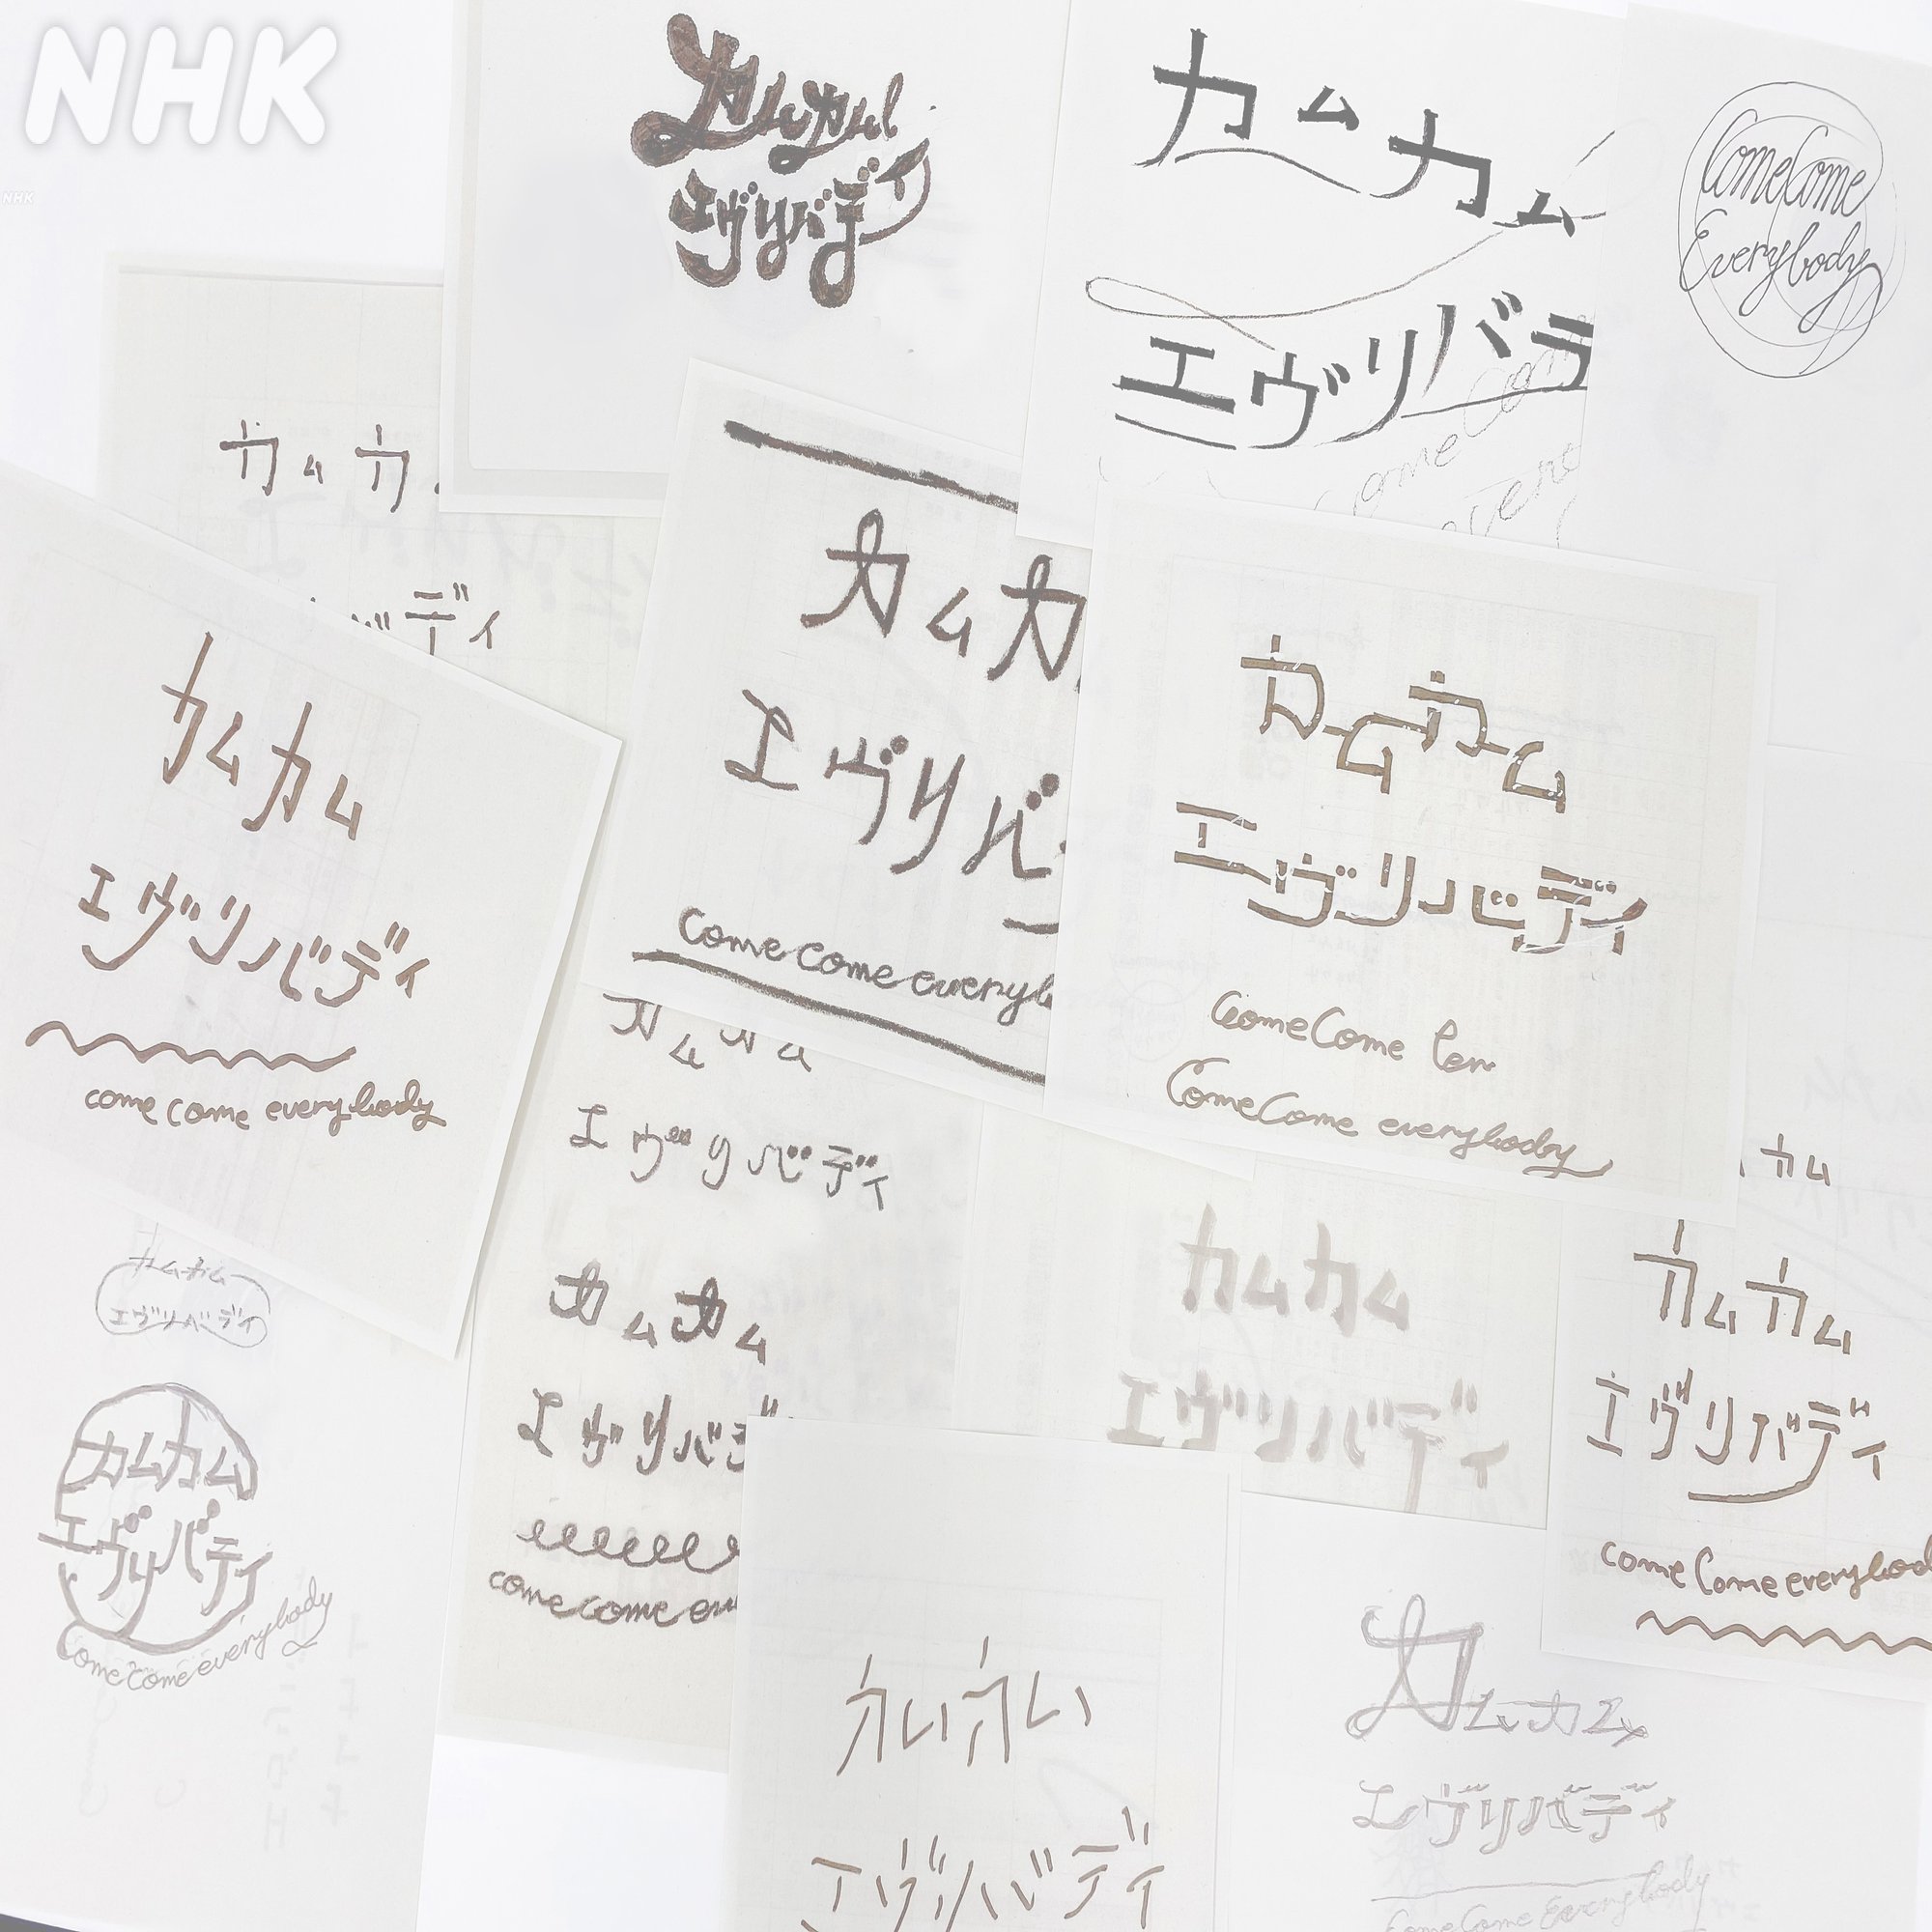 NHK
NHK
カムカム
エヴリバディ
カムカム
エヴリバデ
Come Come
Everybody
カムカ
バディ
カムカ
エヴリバ
come come everyb
カムカム
エヴリバディ
come come everybody
カムカム
エヴリバディ
ComeCome
ComeCome everybody
カムカム
エヴリバディ
カムカム
エヴリバデ
come come eve
カムカム
エヴリバディ
カム
カムカム
エヴリバディ
come Come everybod
カムカム
エヴリバディ
カムカム
エヴリバディ
Come Come everybody
カムカム
エヴリバディ
カムカム
エヴリバディ
Come Come Everybody